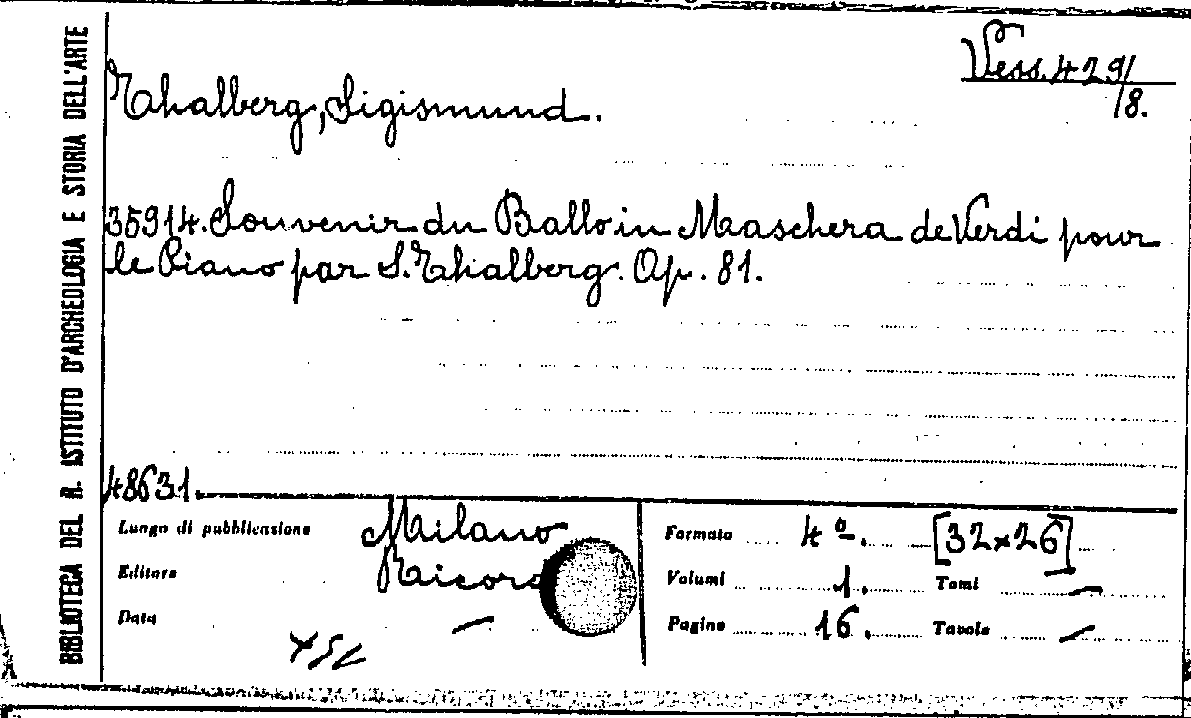 BIBLIOTECA DEL R. ISTITUTO D'ARCHEOLOGIA E STORIA DELL'ARTE
Vess. 429/
/8.
Thalberg, Sigismund.
35914. Souvenir du Ballo in Maschera de Verdi pour
le Piano par S. Thalberg. Op. 81.
48631.
Luogo di pubblicazione Milano
Editore Ricord
Data —
Formato 4º. [32×26]
Volumi 1. Tomi —
Pagine 16. Tavole —